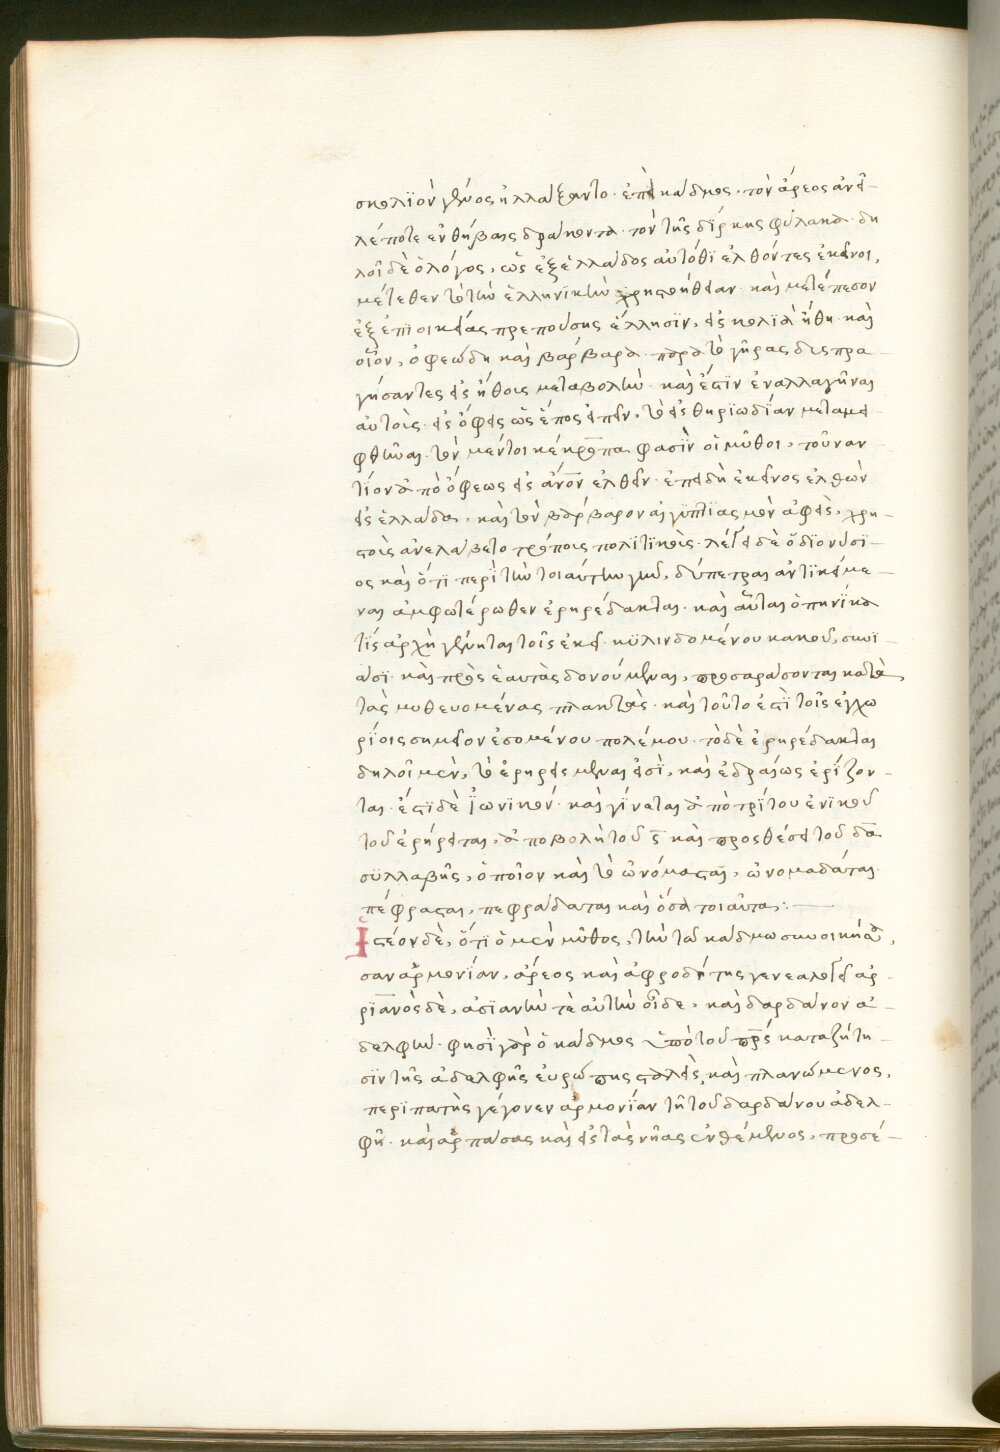 σκολιὸν γένος ἠλλάξαντο. ἐπεὶ κάδμος, τὸν ἄρεος ἀνεῖ-
λέ ποτε ἐν θήβαις δράκοντα. τὸν τῆς δίρκης φύλακα. δη
λοῖ δὲ ὁ λόγος, ὡς ἐξ ἑλλάδος αὐτόθι ἐλθόντες ἐκεῖνοι,
μετέθεντο τὴν ἑλληνικὴν χρηστοήθειαν. καὶ μετέπεσον
ἐξ ἐπιοικείας πρεπούσης ἕλλησιν, εἰς σκολιὰ ἤθη. καὶ
οἷον, ὀφεώδη καὶ βάρβαρα. παρὰ τὸ γῆρας δυσπρα-
γήσαντες εἰς ἤθους μεταβολήν. καὶ ἔστιν ἐναλλαγῆναι
αὐτοὺς εἰς ὄφεις ὡς ἔπος εἰπεῖν, τὸ εἰς θηριωδίαν μεταμει-
φθῆναι. τὸν μέντοι κέκροπα φασὶν οἱ μῦθοι, τοὔναν-
τίον ἀπὸ ὄφεως εἰς ἄνον ἐλθεῖν. ἐπειδὴ ἐκεῖνος ἐλθὼν
εἰς ἑλλάδα, καὶ τὸν βάρβαρον αἰγυπτίας μὸν ἀφεὶς, χρη-
στοὺς ἀνελάβετο τρόπους πολιτικοὺς. λέγει δὲ ὁ διονύσι-
ος καὶ ὅτι περὶ τὴν τοιαύτην γῆν, δύο πέτραι ἀντικείμε-
ναι ἀμφωτέρωθεν ἐρηρέδαται. καὶ αὗται ὁπηνίκα
τίς ἀρχὴ γένηται τοῖς ἐκεῖ κυλινδομένου κακοῦ, συνί-
ασι. καὶ πρὸς ἑαυτὰς δονούμεναι, προσαράσσονται κατὰ
τὰς μυθευομένας πλαγκτὰς. καὶ τοῦτο ἐστὶ τοῖς ἐγχω
ρίοις σημεῖον ἐσομένου πολέμου. τὸ δὲ ἐρηρέδαται
δηλοῖ μὲν, τὸ ἐρηρεισμέναι εἰσὶ, καὶ ἑδραίως ἐρίζον-
ται. ἔστι δὲ ἰωνικὸν. καὶ γίνεται ἀπὸ τρίτου ἑνικοῦ
τοῦ ἐρήρεται, ἀποβολῇ τοῦ ι καὶ προσθέσει τοῦ δα
συλλαβῆς, ὁποῖον καὶ τὸ ὠνόμασται, ὠνομαδάται.
πέφρασται, πεφράδαται καὶ ὅσα τοιαῦτα:
Ἰστέον δὲ, ὅτι ὁ μὲν μῦθος, τὴν τῷ κάδμω συνοικήσα-
σαν ἁρμονίαν, ἄρεος καὶ ἀφροδίτης γενεαλογεῖ ἀρ-
ριανὸς δὲ, ἀσιανὴν τὲ αὐτὴν οἶδε, καὶ δαρδάνου ἀ-
δελφὴν. φησὶ γὰρ ὁ κάδμος ὑπὸ τοῦ πρς κατὰ ζήτη-
σιν τῆς ἀδελφῆς εὐρώπης σταλεὶς, καὶ πλανώμενος,
περιπαθὴς γέγονεν ἁρμονίαν τῆ τοῦ δαρδάνου ἀδελ-
φῆ. καὶ ἁρπάσας καὶ εἰς τὰς νῆας ἐνθέμενος, προσέ-